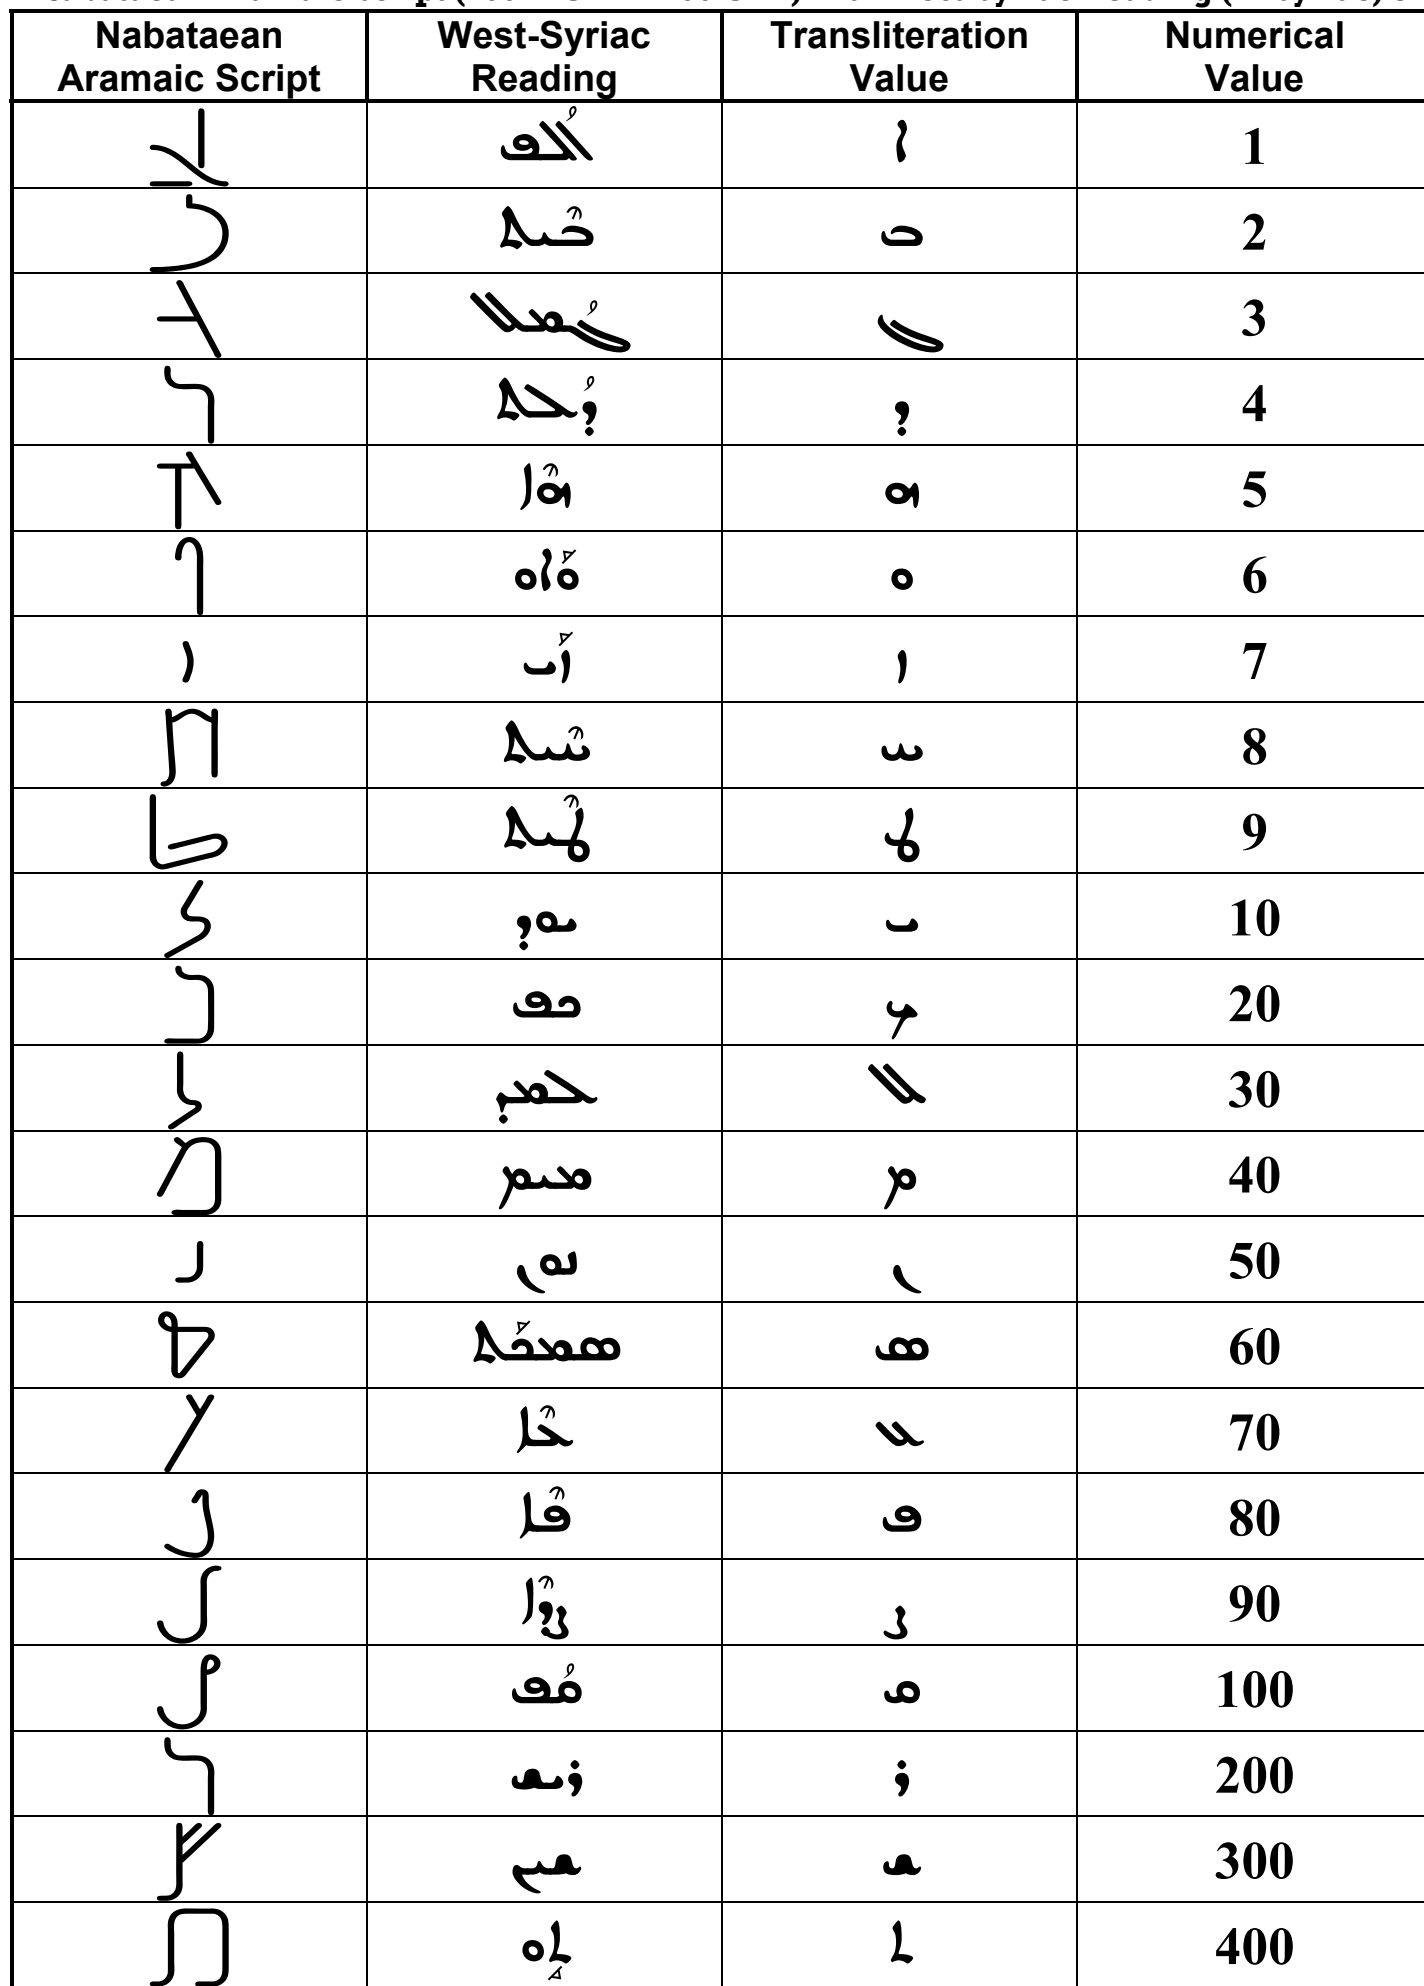 Nabataean Aramaic Script	West-Syriac Reading	Transliteration Value	Numerical Value
𐢁	ܐܳܠܦ	ܐ	1
𐢃	ܒܶܝܬ	ܒ	2
𐢄	ܓܳܡܠ	ܓ	3
𐢅	ܕܳܠܬ	ܕ	4
𐢇	ܗܶܐ	ܗ	5
𐢈	ܘܰܐܘ	ܘ	6
𐢉	ܙܰܝ	ܙ	7
𐢊	ܚܶܝܬ	ܚ	8
𐢋	ܛܶܝܬ	ܛ	9
𐢍	ܝܘܕ	ܝ	10
𐢏	ܟܦ	ܟ	20
𐢑	ܠܡܕ	ܠ	30
𐢓	ܡܝܡ	ܡ	40
𐢕	ܢܘܢ	ܢ	50
𐢖	ܣܡܟܰܬ	ܣ	60
𐢗	ܥܶܐ	ܥ	70
𐢘	ܦܶܐ	ܦ	80
𐢙	ܨܕܶܐ	ܨ	90
𐢚	ܩܳܦ	ܩ	100
𐢛	ܪܝܫ	ܪ	200
𐢝	ܫܝܢ	ܫ	300
𐢞	ܬܱܘ	ܬ	400